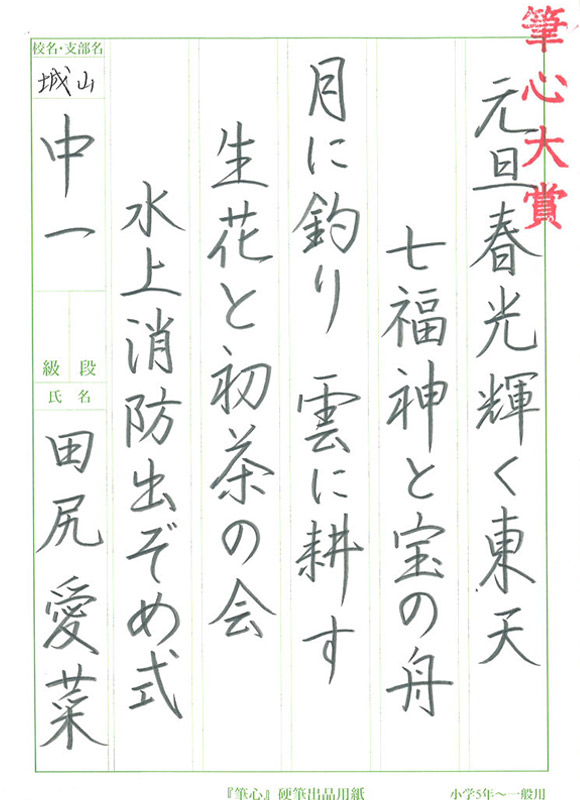 筆心大賞
元旦春光輝く東天
七福神と宝の舟
月に釣り 雲に耕す
生花と初茶の会
水上消防出ぞめ式
校名・支部名
城山
中一
級 段
氏名
田尻 愛菜
『筆心』硬筆出品用紙
小学5年〜一般用